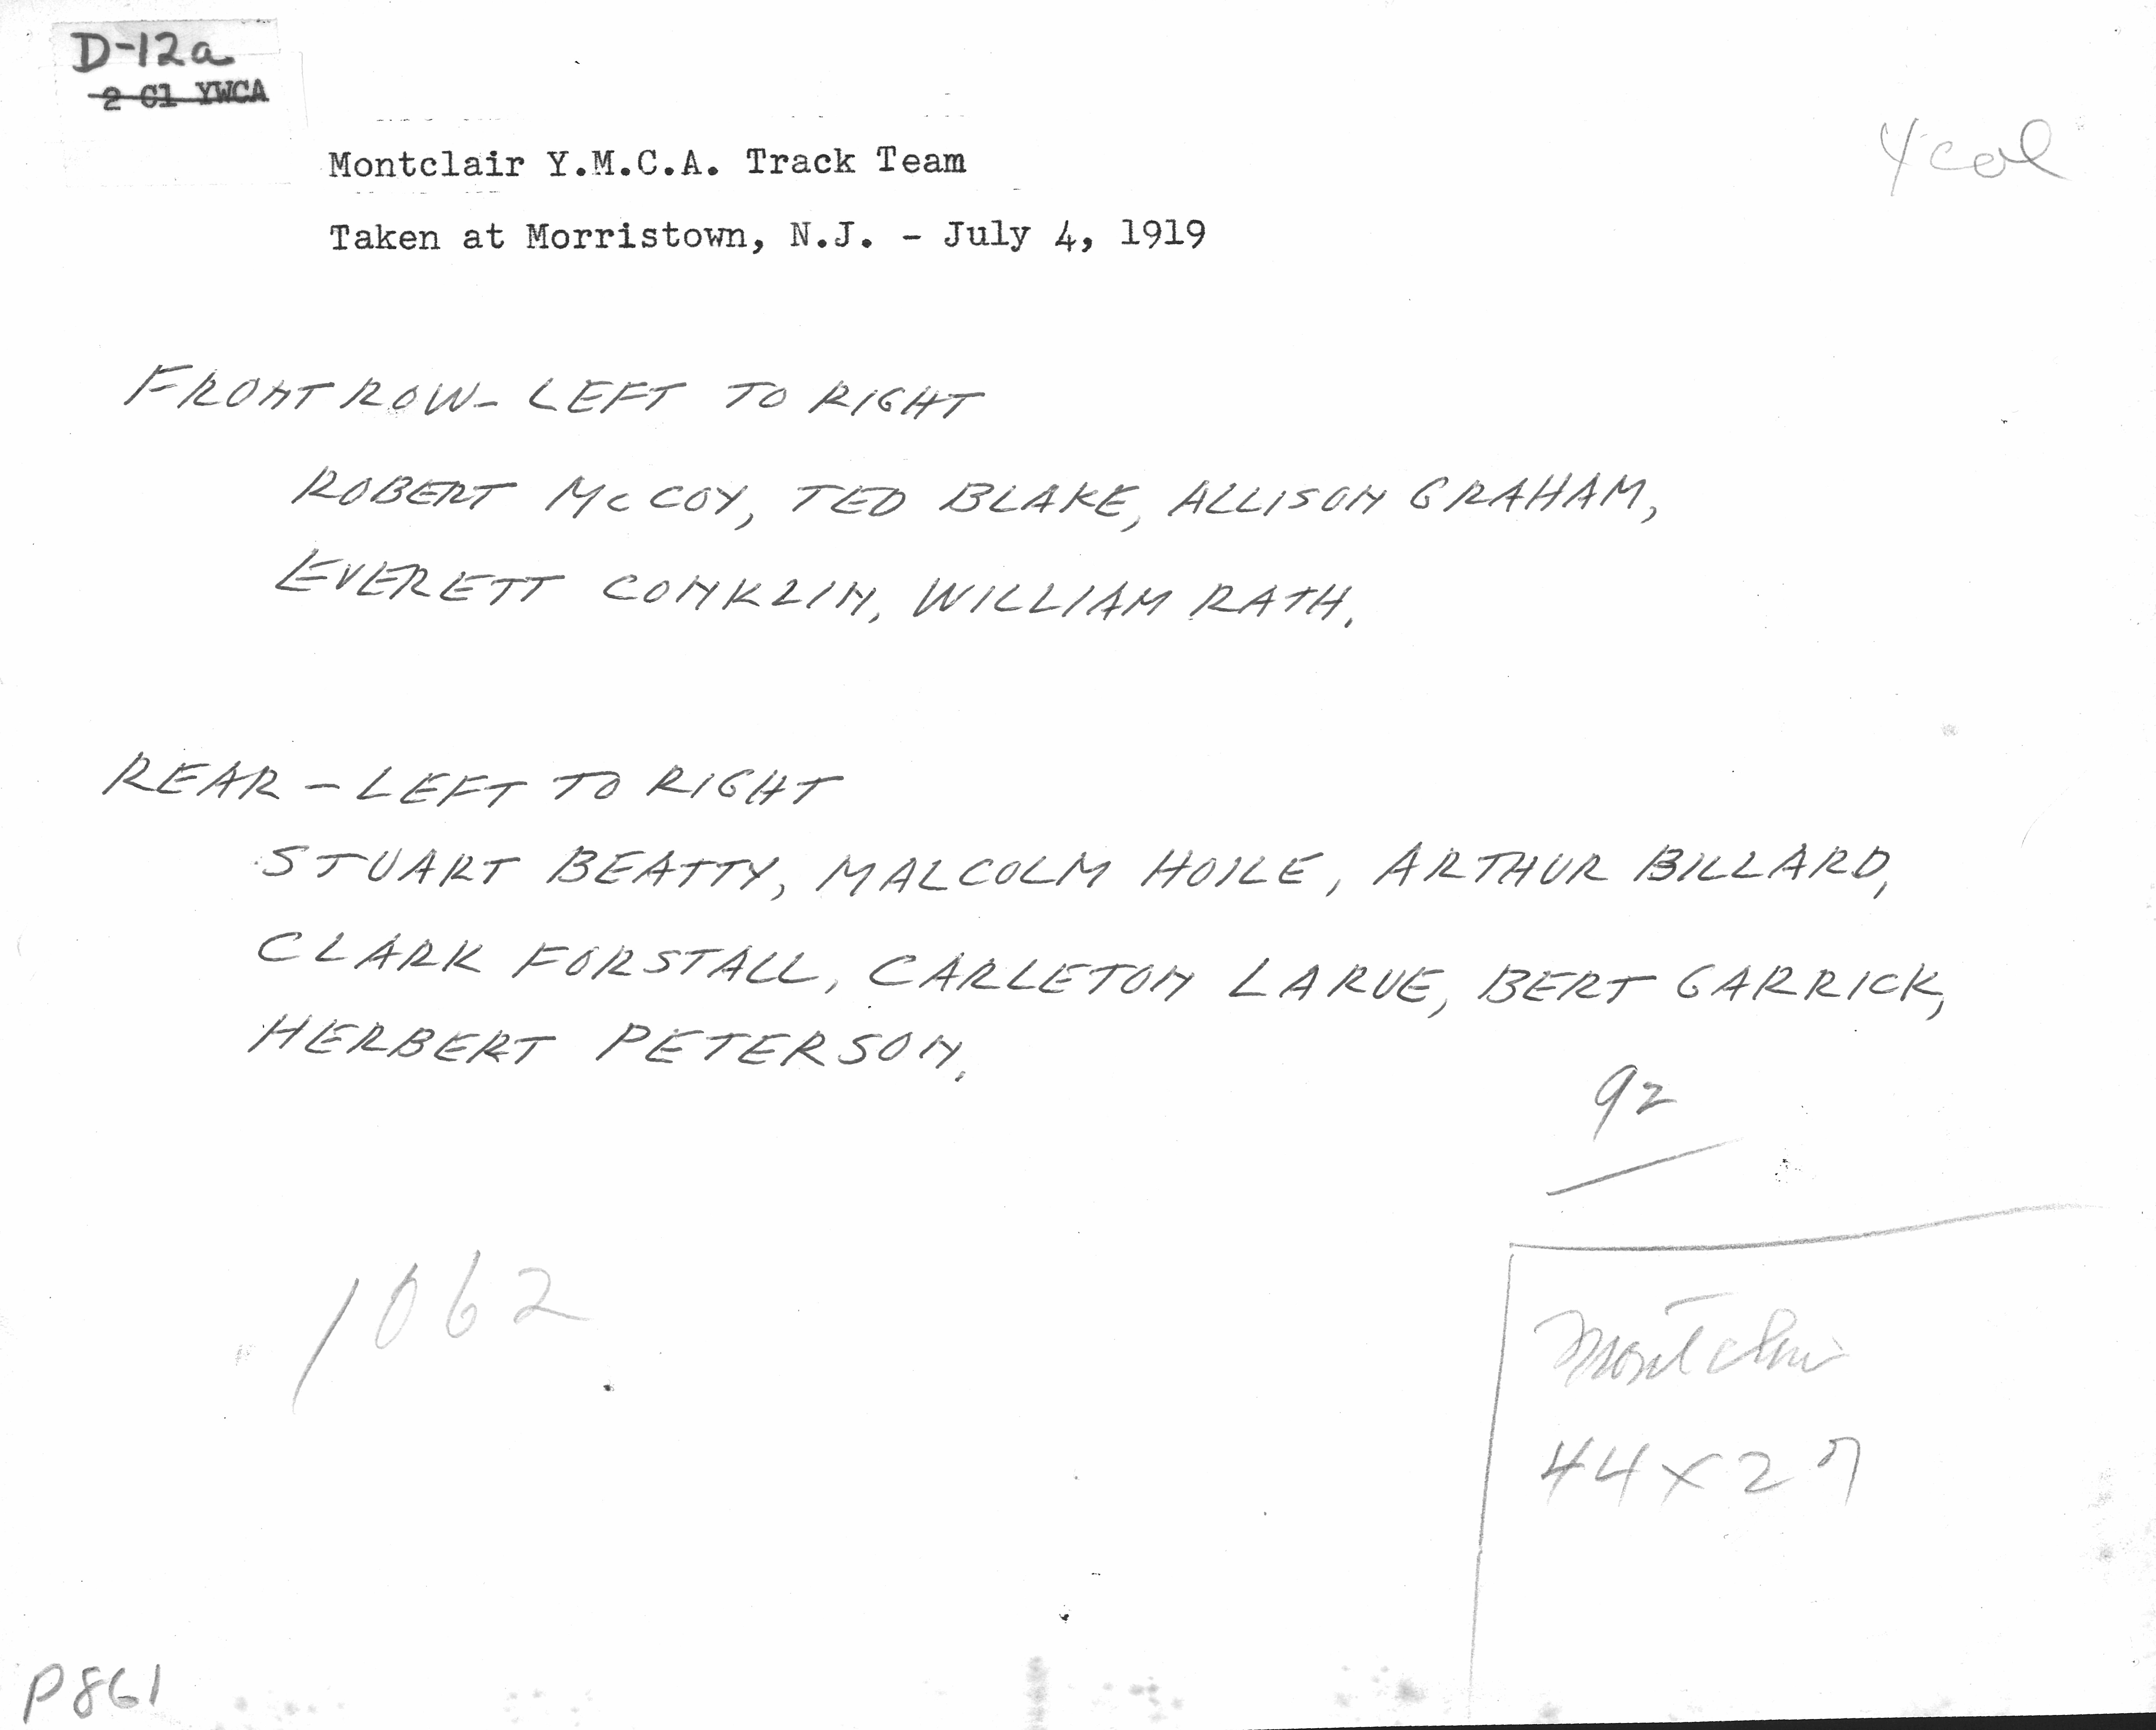 D-12a
2 Cl YWCA
4 col
Montclair Y.M.C.A. Track Team
Taken at Morristown, N.J. - July 4, 1919
FRONT ROW - LEFT TO RIGHT
ROBERT McCOY, TED BLAKE, ALLISON GRAHAM,
EVERETT CONKLIN, WILLIAM RATH.
REAR - LEFT TO RIGHT
STUART BEATTY, MALCOLM HOILE, ARTHUR BILLARD,
CLARK FORSTALL, CARLETON LARUE, BERT GARRICK,
HERBERT PETERSON.
92
1062
Montclair
44x27
P861